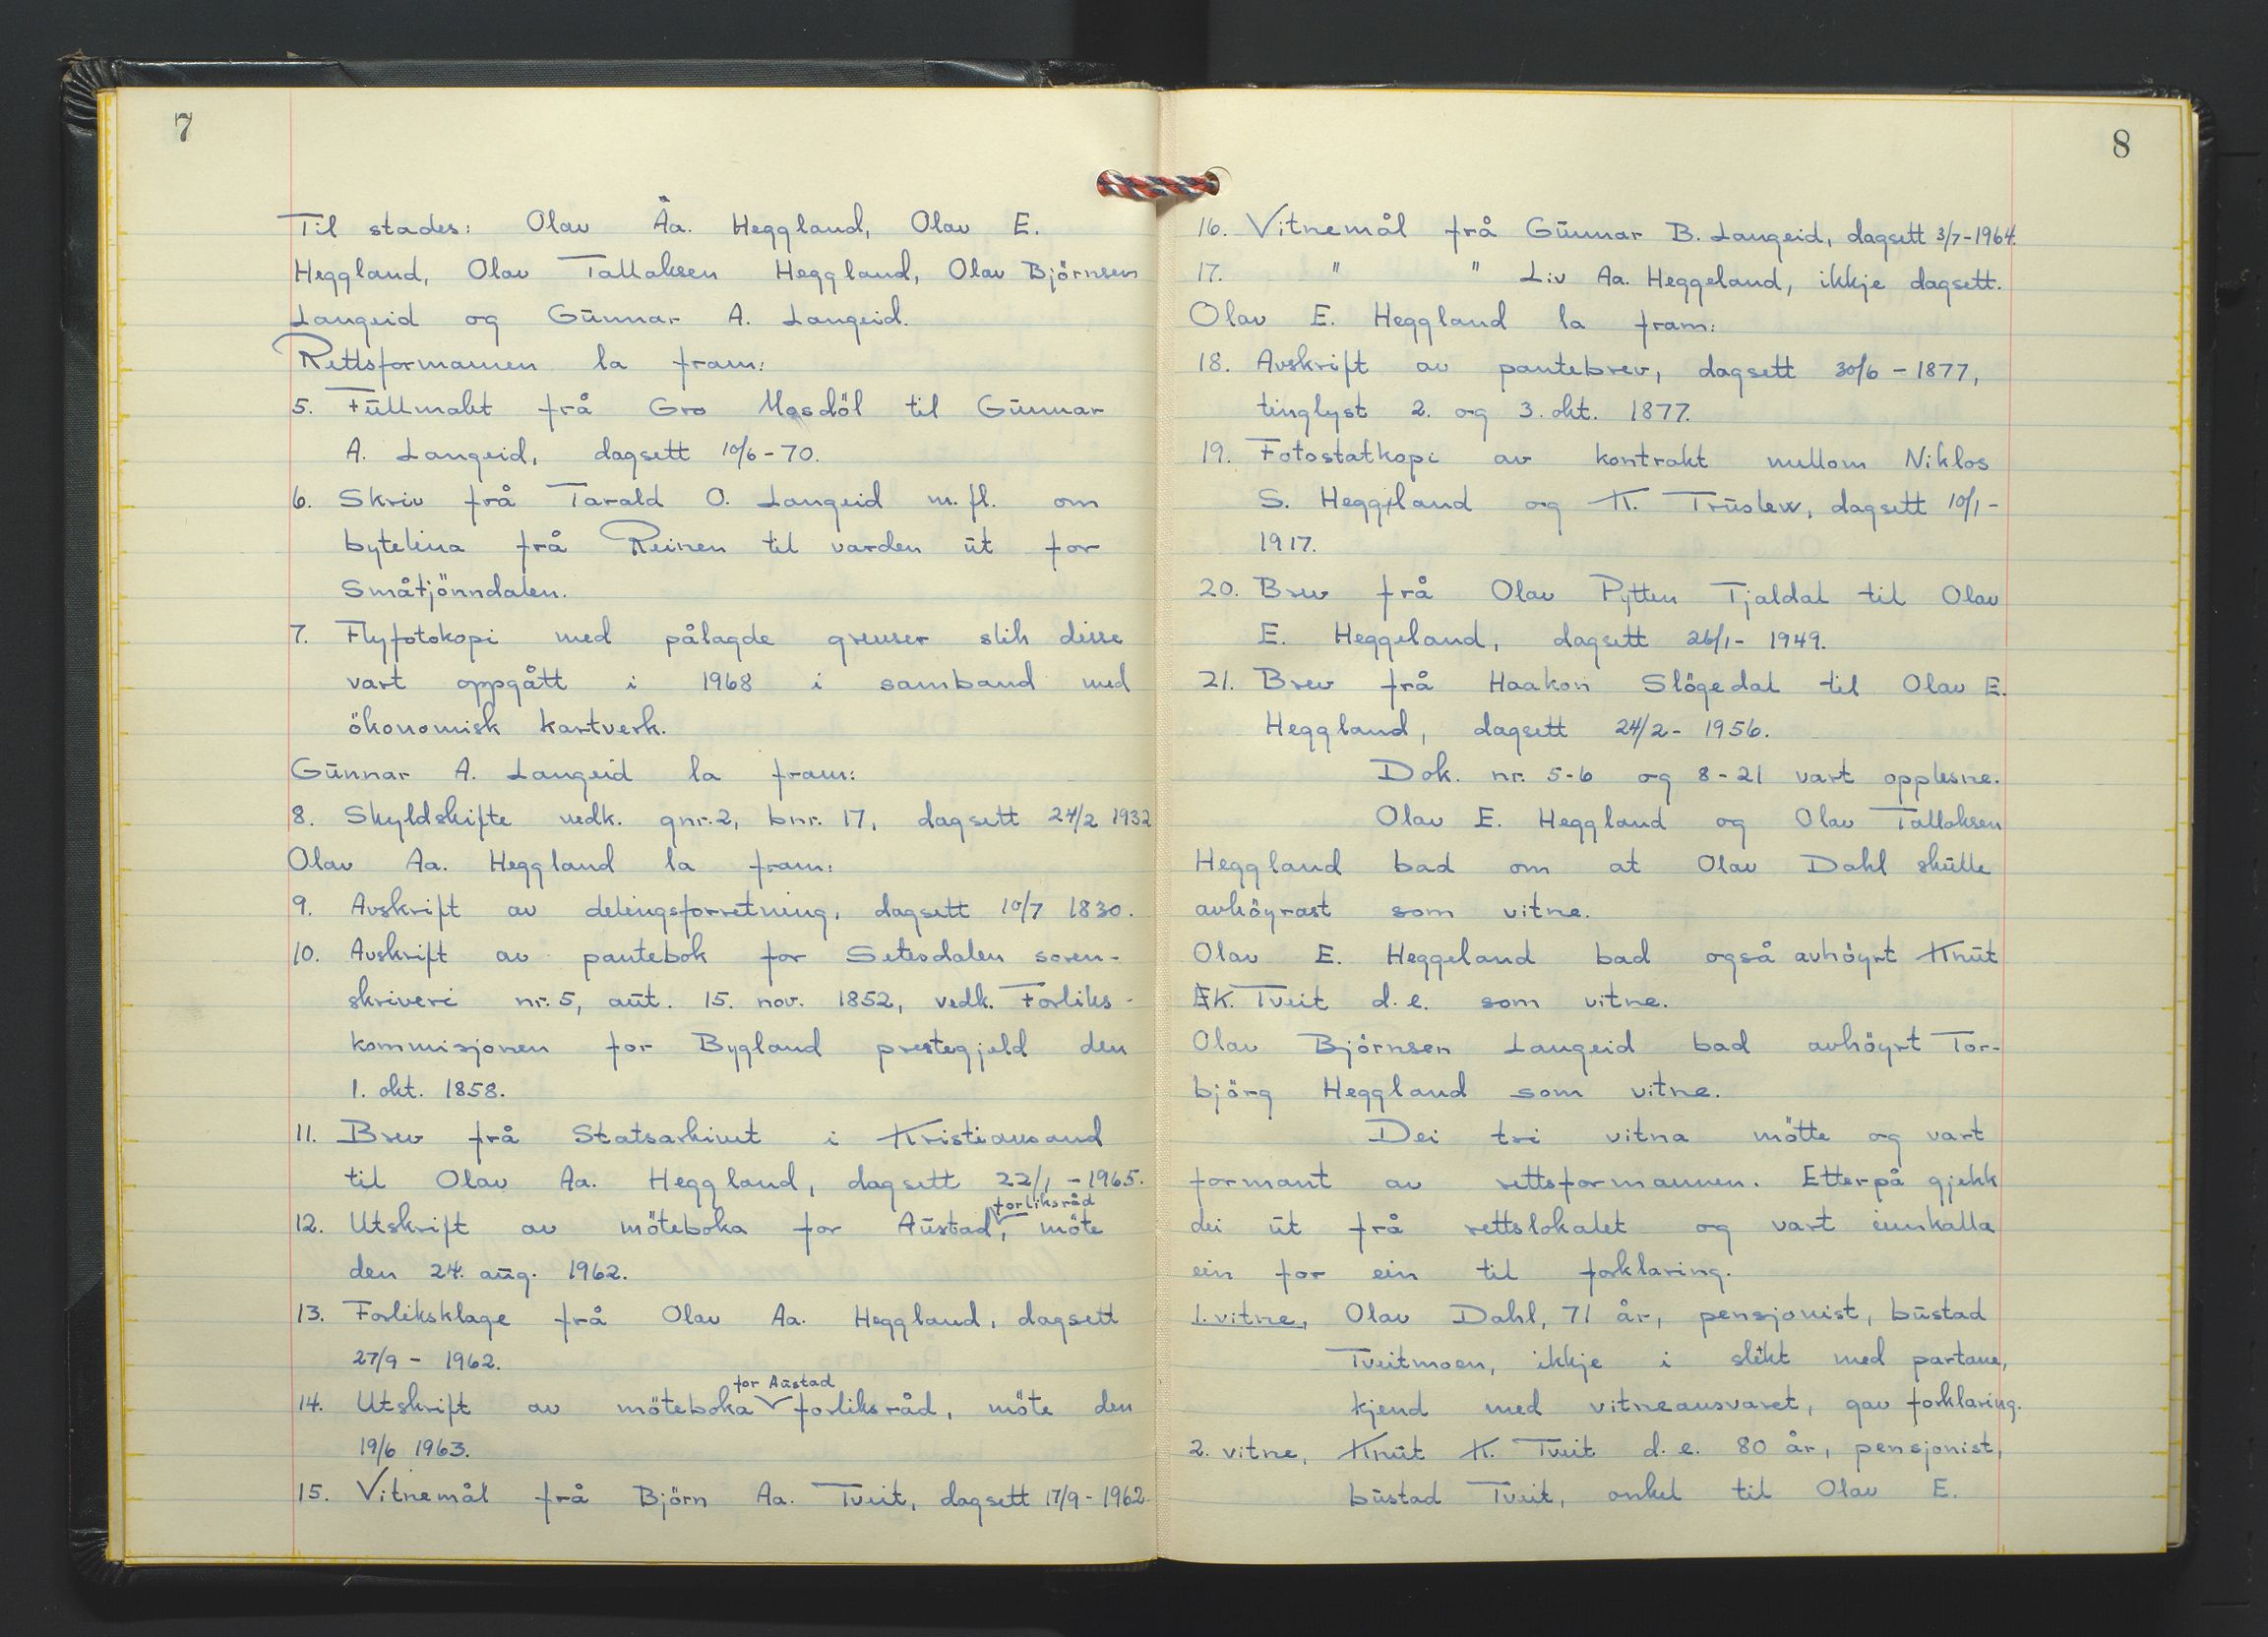 7
Til stades: Olav Åa. Heggland, Olav E.
Heggland, Olav Tallaksen Heggland, Olav Björnsen
Langeid og Gunnar A. Langeid.
Rettsformannen la fram:
5. Fullmakt frå Gro Mosdöl til Gunnar
A. Langeid, dagsett 10/6-70.
6. Skriv frå Tarald O. Langeid m.fl. om
bytelina frå Reinen til varden ut for
Småtjönndalen.
7. Flyfotokopi med pålagde grenser slik disse
vart oppgått i 1968 i samband med
ökonomisk kartverk.
Gunnar A. Langeid la fram:
8. Skyldskifte vedk. gnr. 2, bnr. 17, dagsett 24/2 1932
Olav Aa. Heggland la fram:
9. Avskrift av delingsforretning, dagsett 10/7 1830.
10. Avskrift av pantebok for Setesdalen soren-
skriveri nr. 5, aut. 15. nov. 1852, vedk. Forliks-
kommisjonen for Bygland prestegjeld den
1. okt. 1858.
11. Brev frå Statsarkivet i Kristiansand
til Olav Aa. Heggland, dagsett 22/1 - 1965.
forliksråd
12. Utskrift av möteboka for Austad, möte
den 24. aug. 1962.
13. Forliksklage frå Olav Aa. Heggland, dagsett
27/9 - 1962.
for Austad
14. Utskrift av möteboka forliksråd, möte den
19/6 1963.
15. Vitnemål frå Björn Aa. Tveit, dagsett 17/9-1962.
8
16. Vitnemål frå Gunnar B. Langeid, dagsett 3/7-1964.
17. " " Liv Aa. Heggeland, ikkje dagsett.
Olav E. Heggland la fram:
18. Avskrift av pantebrev, dagsett 30/6 - 1877,
tinglyst 2. og 3. okt. 1877.
19. Fotostatkopi av kontrakt mellom Niklos
S. Heggland og K. Truslew, dagsett 10/1-
1917.
20. Brev frå Olav Pytten Tjaldal til Olav
E. Heggeland, dagsett 26/1- 1949.
21. Brev frå Haakon Slögedal til Olav E.
Heggland, dagsett 24/2- 1956.
Dok. nr. 5-6 og 8-21 vart opplesne.
Olav E. Heggland og Olav Tallaksen
Heggland bad om at Olav Dahl skulle
avhöyrast som vitne.
Olav E. Heggeland bad også avhöyrt Knut
K. Tveit d.e. som vitne.
Olav Björnsen Langeid bad avhöyrt Tor-
björg Heggland som vitne.
Dei tri vitna mötte og vart
formant av rettsformannen. Etterpå gjekk
dei ut frå rettslokalet og vart innkalla
ein for ein til forklaring.
1. vitne, Olav Dahl, 71 år, pensjonist, bustad
Tveitmoen, ikkje i slekt med partane,
kjend med vitneansvaret, gav forklaring.
2. vitne, Knut K. Tveit d.e. 80 år, pensjonist,
bustad Tveit, onkel til Olav E.